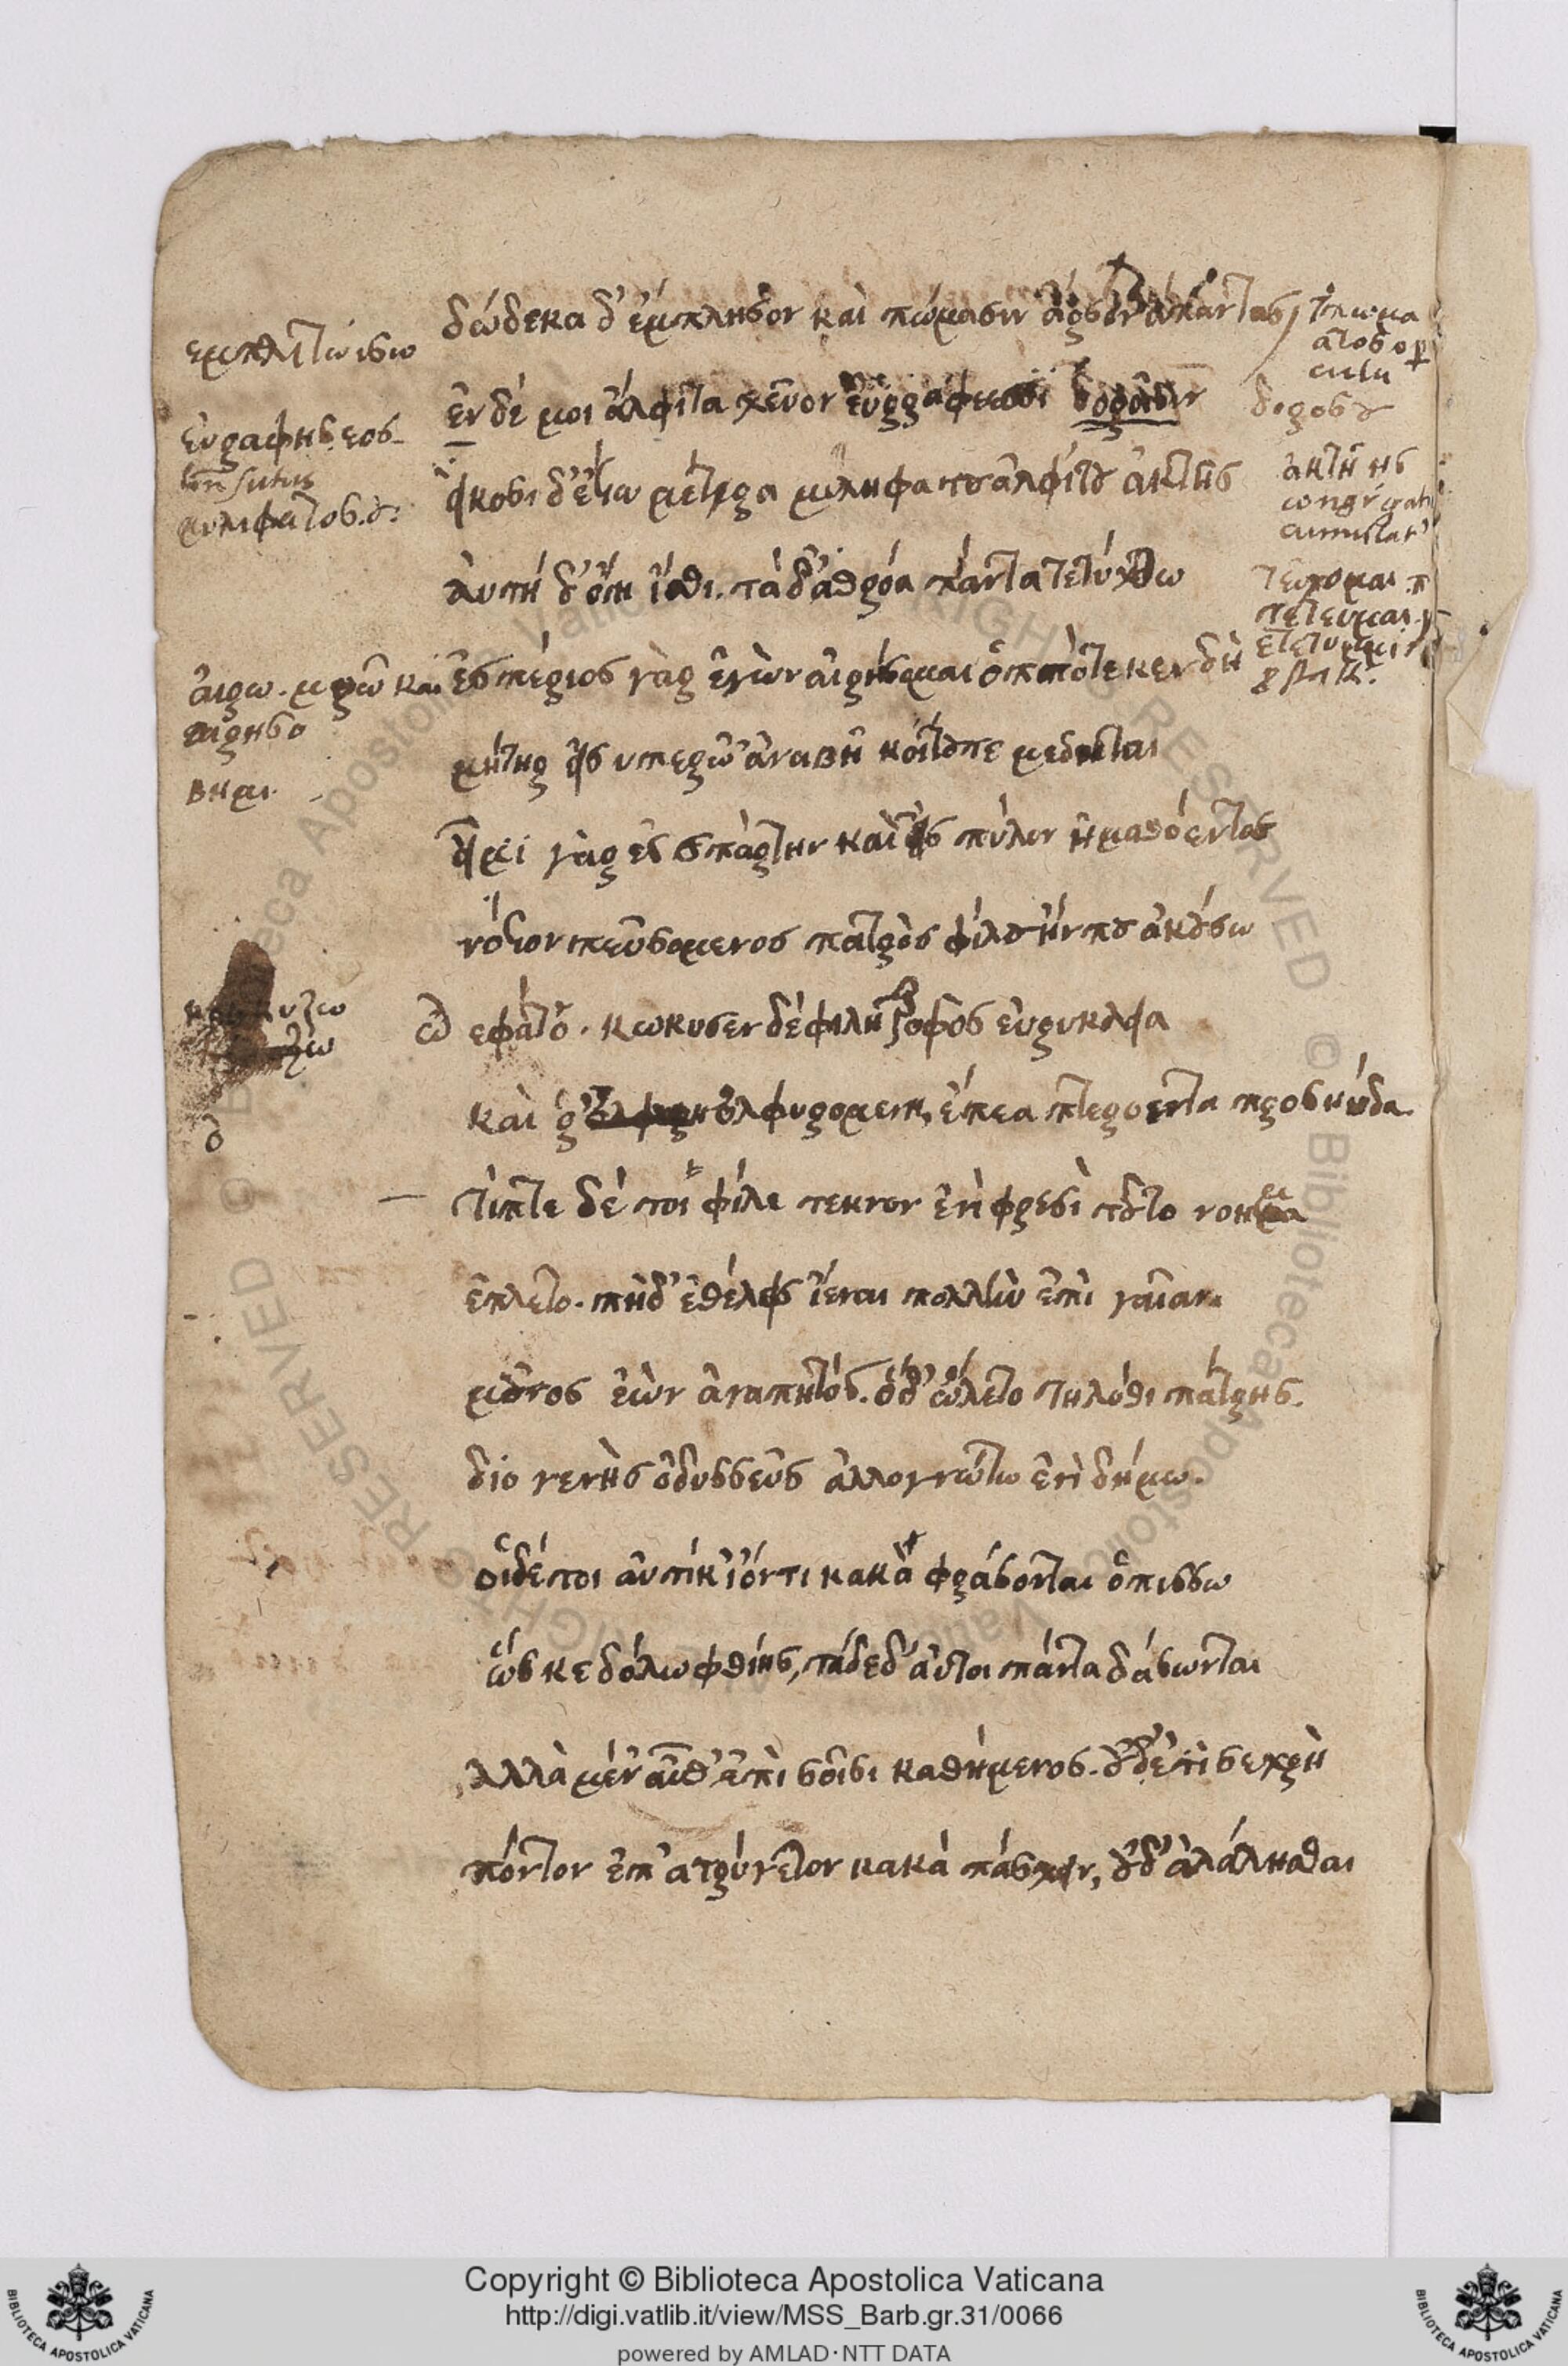 δώδεκα δ' ἔμπλησον καὶ πώμασιν ἄρσον ἅπαντας
ἐν δέ μοι ἄλφιτα χεῦον ἐϋρραφέεσσι δοροῖσιν
εἴκοσι δ' ἔστω μέτρα μυληφάτου ἀλφίτου ἀκτῆς
ἀυτὴ δ' ὄιη ἴσθι. τὰ δ' ἀθρόα πάντα τετύχθω
ἑσπέριος γὰρ ἐγὼν αἱρήσομαι ὅππότε κεν δὴ
μήτηρ εἰς υπερῶ' ἀναβῆ κοίτου τε μέδηται
εἶμι γὰρ ἐς σπάρτην καὶ εἰς πύλον ἠμαθόεντος
νόστον πευσόμενος πατρὸς φίλου ἤν που ἀκούσω
ὣς εφατο. κωκυσεν δὲ φίλη τροφος εὐρυκλεια
καὶ ῥ' ὀλοφυρομενη ἔπεα πτεροεντα προσηύδα.
τίπτε δέ τοι φίλε τεκνον ἐνὶ φρεσὶ τοῦτο νοημα
ἔπλετο. πῆ δ' ἐθέλεις ἰέναι πολλὴν ἐπὶ γαῖαν.
μοῦνος ἐὼν ἀγαπητός. ὁ δ' ὤλετο τηλόθι πάτρης.
διογενὴς ὀδυσσεῦς ἀλλογνώτω ἐνὶ δήμω.
οἱ δέ τοι αὐτίκ' ἰόντι κακὰ φράσονται ὀπισσω
ὥς κε δόλω φθίης, τάδε δ' αὐτοι πάντα δάσωνται
ἀλλὰ μέν' αὖθ' ἐπὶ σοῖσι καθήμενος. οὐδέ τι σε χρὴ
πόντον ἐπ' ατρύγετον κακὰ πάσχειν, οὐδ' ἀλάλησθαι
ἐυραφης εος
δορος ου
ἀκτὴ ῆς
αἱρω. μ ρῶ και
βημι
Copyright © Biblioteca Apostolica Vaticana
http://digi.vatlib.it/view/MSS_Barb.gr.31/0066
powered by AMLAD·NTT DATA
BIBLIOTECA APOSTOLICA VATICANA
BIBLIOTECA APOSTOLICA VATICANA